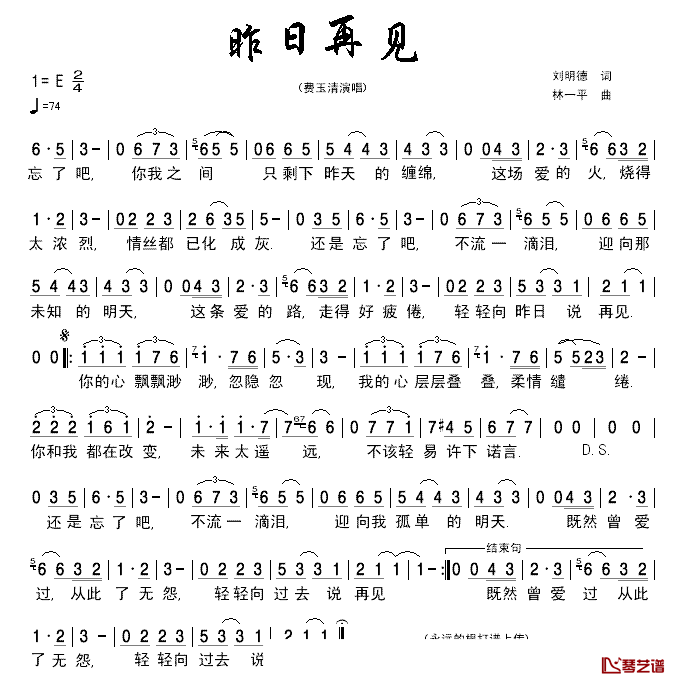 昨日再见
1= E 2/4
（费玉清演唱）
刘明德 词
♩=74
林一平 曲
6 · 5 | 3 - | 0 6 7 3 | 5 6 5 5 | 0 6 6 5 | 5 4 4 3 | 4 3 3 | 0 0 4 3 | 2 · 3 | 5 6 6 3 2 |
忘了吧, 你我之 间 只剩下 昨天 的 缠绵, 这场 爱的 火, 烧得
1 · 2 | 3 - | 0 2 2 3 | 2 6 3 5 | 0 - | 0 3 5 | 6 · 5 | 3 - | 0 6 7 3 | 5 6 5 5 | 0 6 6 5 |
太浓烈, 情丝都 已化 成灰. 还是 忘了吧, 不流一 滴泪, 迎向那
5 4 4 3 | 4 3 3 | 0 0 4 3 | 2 · 3 | 5 6 6 3 2 | 1 · 2 | 3 - | 0 2 2 3 | 5 3 3 1 | 2 1 1 |
未知 的 明天, 这条 爱的 路, 走得 好疲倦, 轻轻向 昨日 说 再见.
0 0 ‖: 1 1 1 1 7 6 | 7 1 · 7 6 | 5 - | 1 1 1 1 7 6 | 7 1 · 7 6 | 5 5 2 3 | 2 - |
你的心 飘飘渺 渺, 忽隐忽 现, 我的心 层层叠 叠, 柔情 缱 绻.
2 2 2 1 6 1 | 2 - | 1 · 1 1 · 7 | 7 6 7 6 6 | 0 7 7 1 | 7 #4 4 5 | 6 - | 0 0 | 0 0 |
你和我 都在改 变, 未来太遥 远, 不该轻 易 许下 诺言. D.S.
0 3 5 | 6 · 5 | 3 - | 0 6 7 3 | 5 6 5 5 | 0 6 6 5 | 5 4 4 3 | 4 3 3 | 0 0 4 3 | 2 · 3 |
还是 忘了吧, 不流一 滴泪, 迎向我 孤单 的 明天. 既然 曾爱
结束句
5 6 6 3 2 | 1 · 2 | 3 - | 0 2 2 3 | 5 3 3 1 | 2 1 1 | 1 - :‖ 0 0 4 3 | 2 · 3 | 5 6 6 3 2 |
过, 从此 了无怨, 轻轻向 过去 说 再见 既然 曾爱 过 从此
1 · 2 | 3 - | 0 2 2 3 | 5 3 3 1 | 2 1 | 1 - ‖
了无怨, 轻轻向 过去 说
琴艺谱